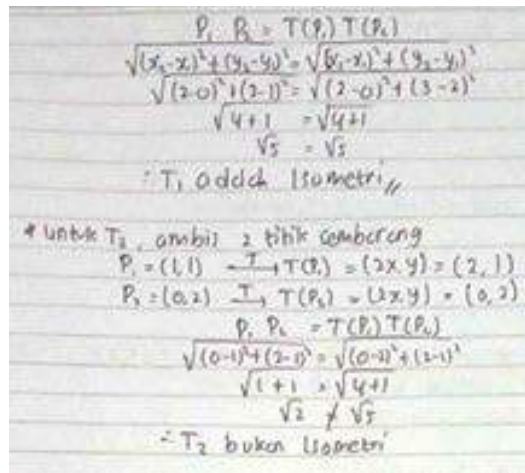 P₁ P₂ = T(P₁) T(P₂)
√(x₂-x₁)²+(y₂-y₁)² = √(x₂-x₁)²+(y₂-y₁)²
√(2-0)²+(2-1)² = √(2-0)²+(3-2)²
√4+1 = √4+1
√5 = √5
∴ T₁ adalah Isometri //
* untuk T₂, ambil 2 titik sembarang
P₁ = (1,1) T→ T(P₁) = (2x,y) = (2,1)
P₂ = (0,2) T→ T(P₂) = (2x,y) = (0,2)
P₁ P₂ = T(P₁) T(P₂)
√(0-1)²+(2-1)² = √(0-2)²+(2-1)²
√1+1 = √4+1
√2 ≠ √5
∴ T₂ bukan Isometri